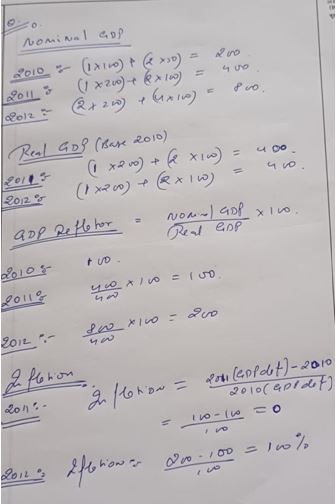 Nominal GDP
2010 :- (1x100) + (2x50) = 200.
2011 :- (1x200) + (2x100) = 400.
2012 :- (2x200) + (4x100) = 800.
Real GDP (Base 2010)
2011 :- (1x200) + (2x100) = 400.
2012 :- (1x200) + (2x100) = 400.
GDP Deflator = Nominal GDP / Real GDP x100.
2010 :- 100.
2011 :- 400/400 x100 = 100.
2012 :- 800/400 x100 = 200
Inflation
2011 :- Inflation = 2011(GDP def) - 2010 / 2010(GDP def)
= 100-100/100 = 0
2012 :- Inflation :- 200-100/100 = 100%